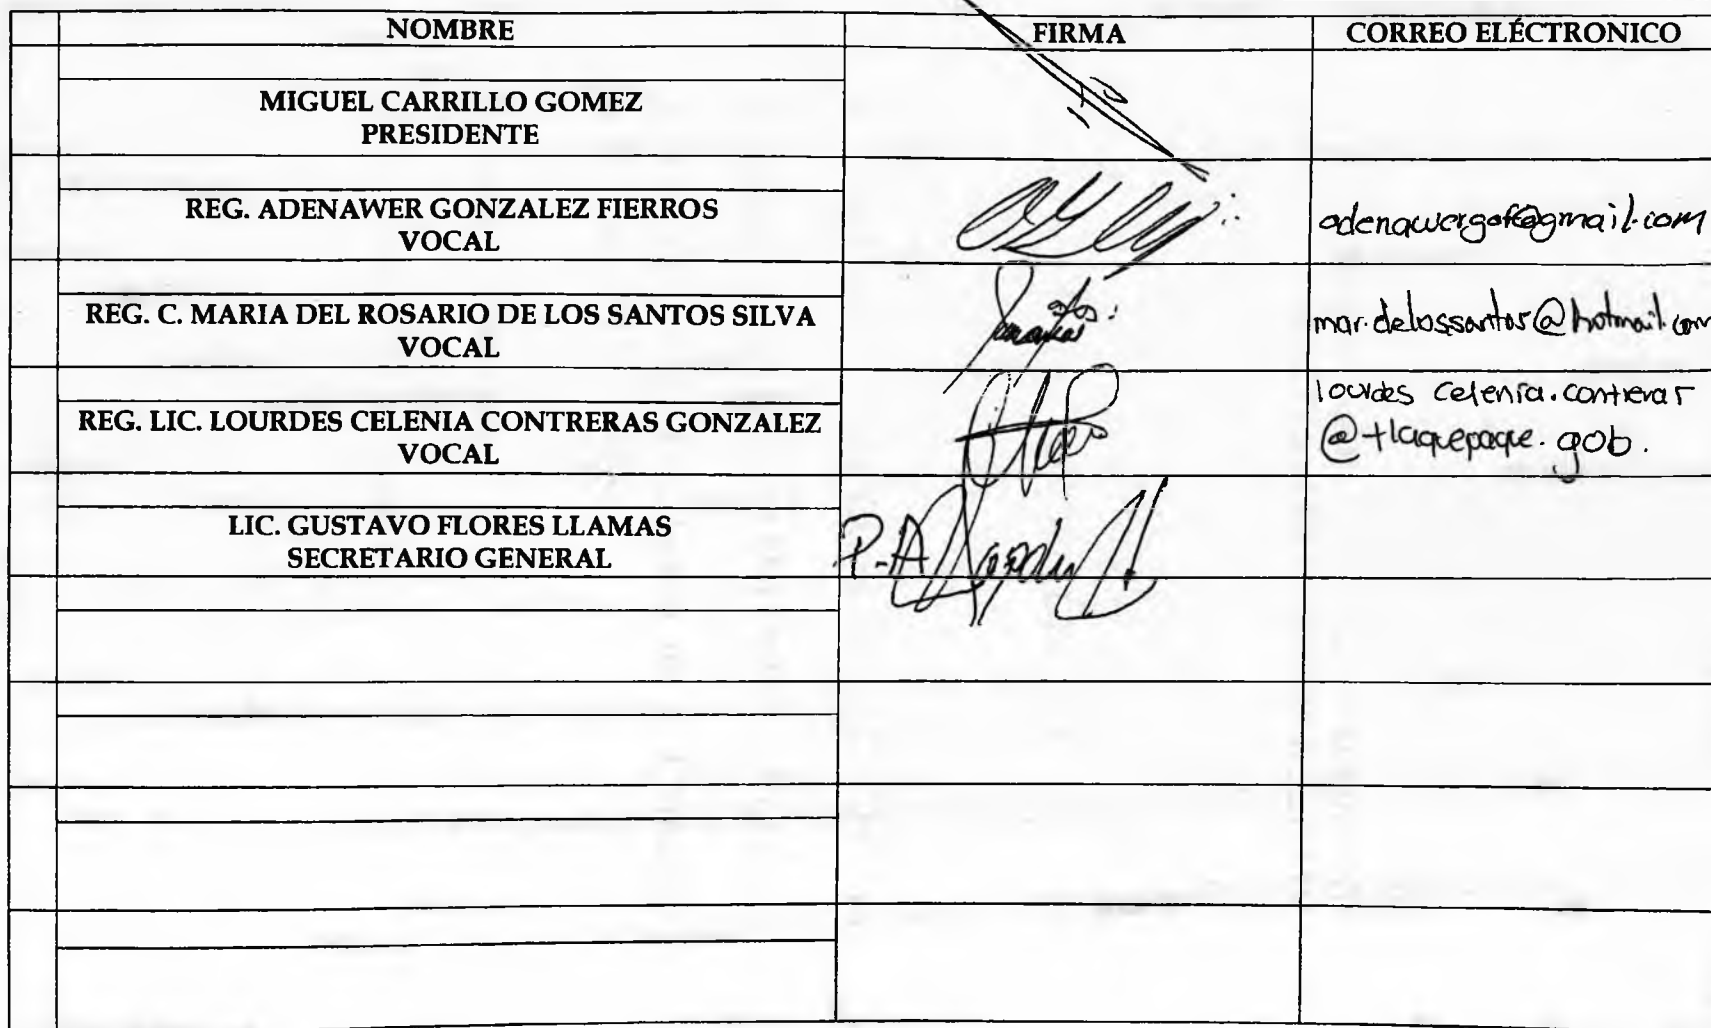 NOMBRE FIRMA CORREO ELÉCTRONICO
MIGUEL CARRILLO GOMEZ
PRESIDENTE
REG. ADENAWER GONZALEZ FIERROS
VOCAL
adenawergof@gmail.com
REG. C. MARIA DEL ROSARIO DE LOS SANTOS SILVA
VOCAL
mar.delossantos@hotmail.com
REG. LIC. LOURDES CELENIA CONTRERAS GONZALEZ
VOCAL
lourdes celenia.contreras
@tlaquepaque.gob.
LIC. GUSTAVO FLORES LLAMAS
SECRETARIO GENERAL
P.A